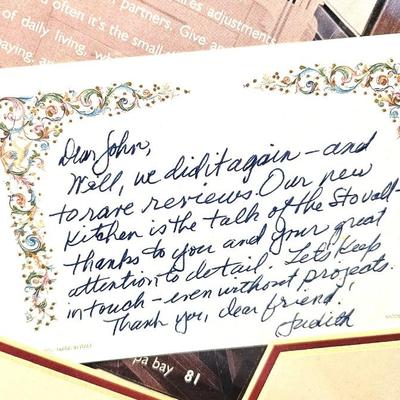 partners. Give an
d often it's the small
ires adjustments
of daily living, wh
aying, an
Dear John,
Well, we did it again – and
to rave reviews. Our new
kitchen is the talk of the Stovall –
thanks to you and your great
attention to detail. Let's keep
in touch – even without projects.
Thank you, dear friend!
Judith
pa bay 81